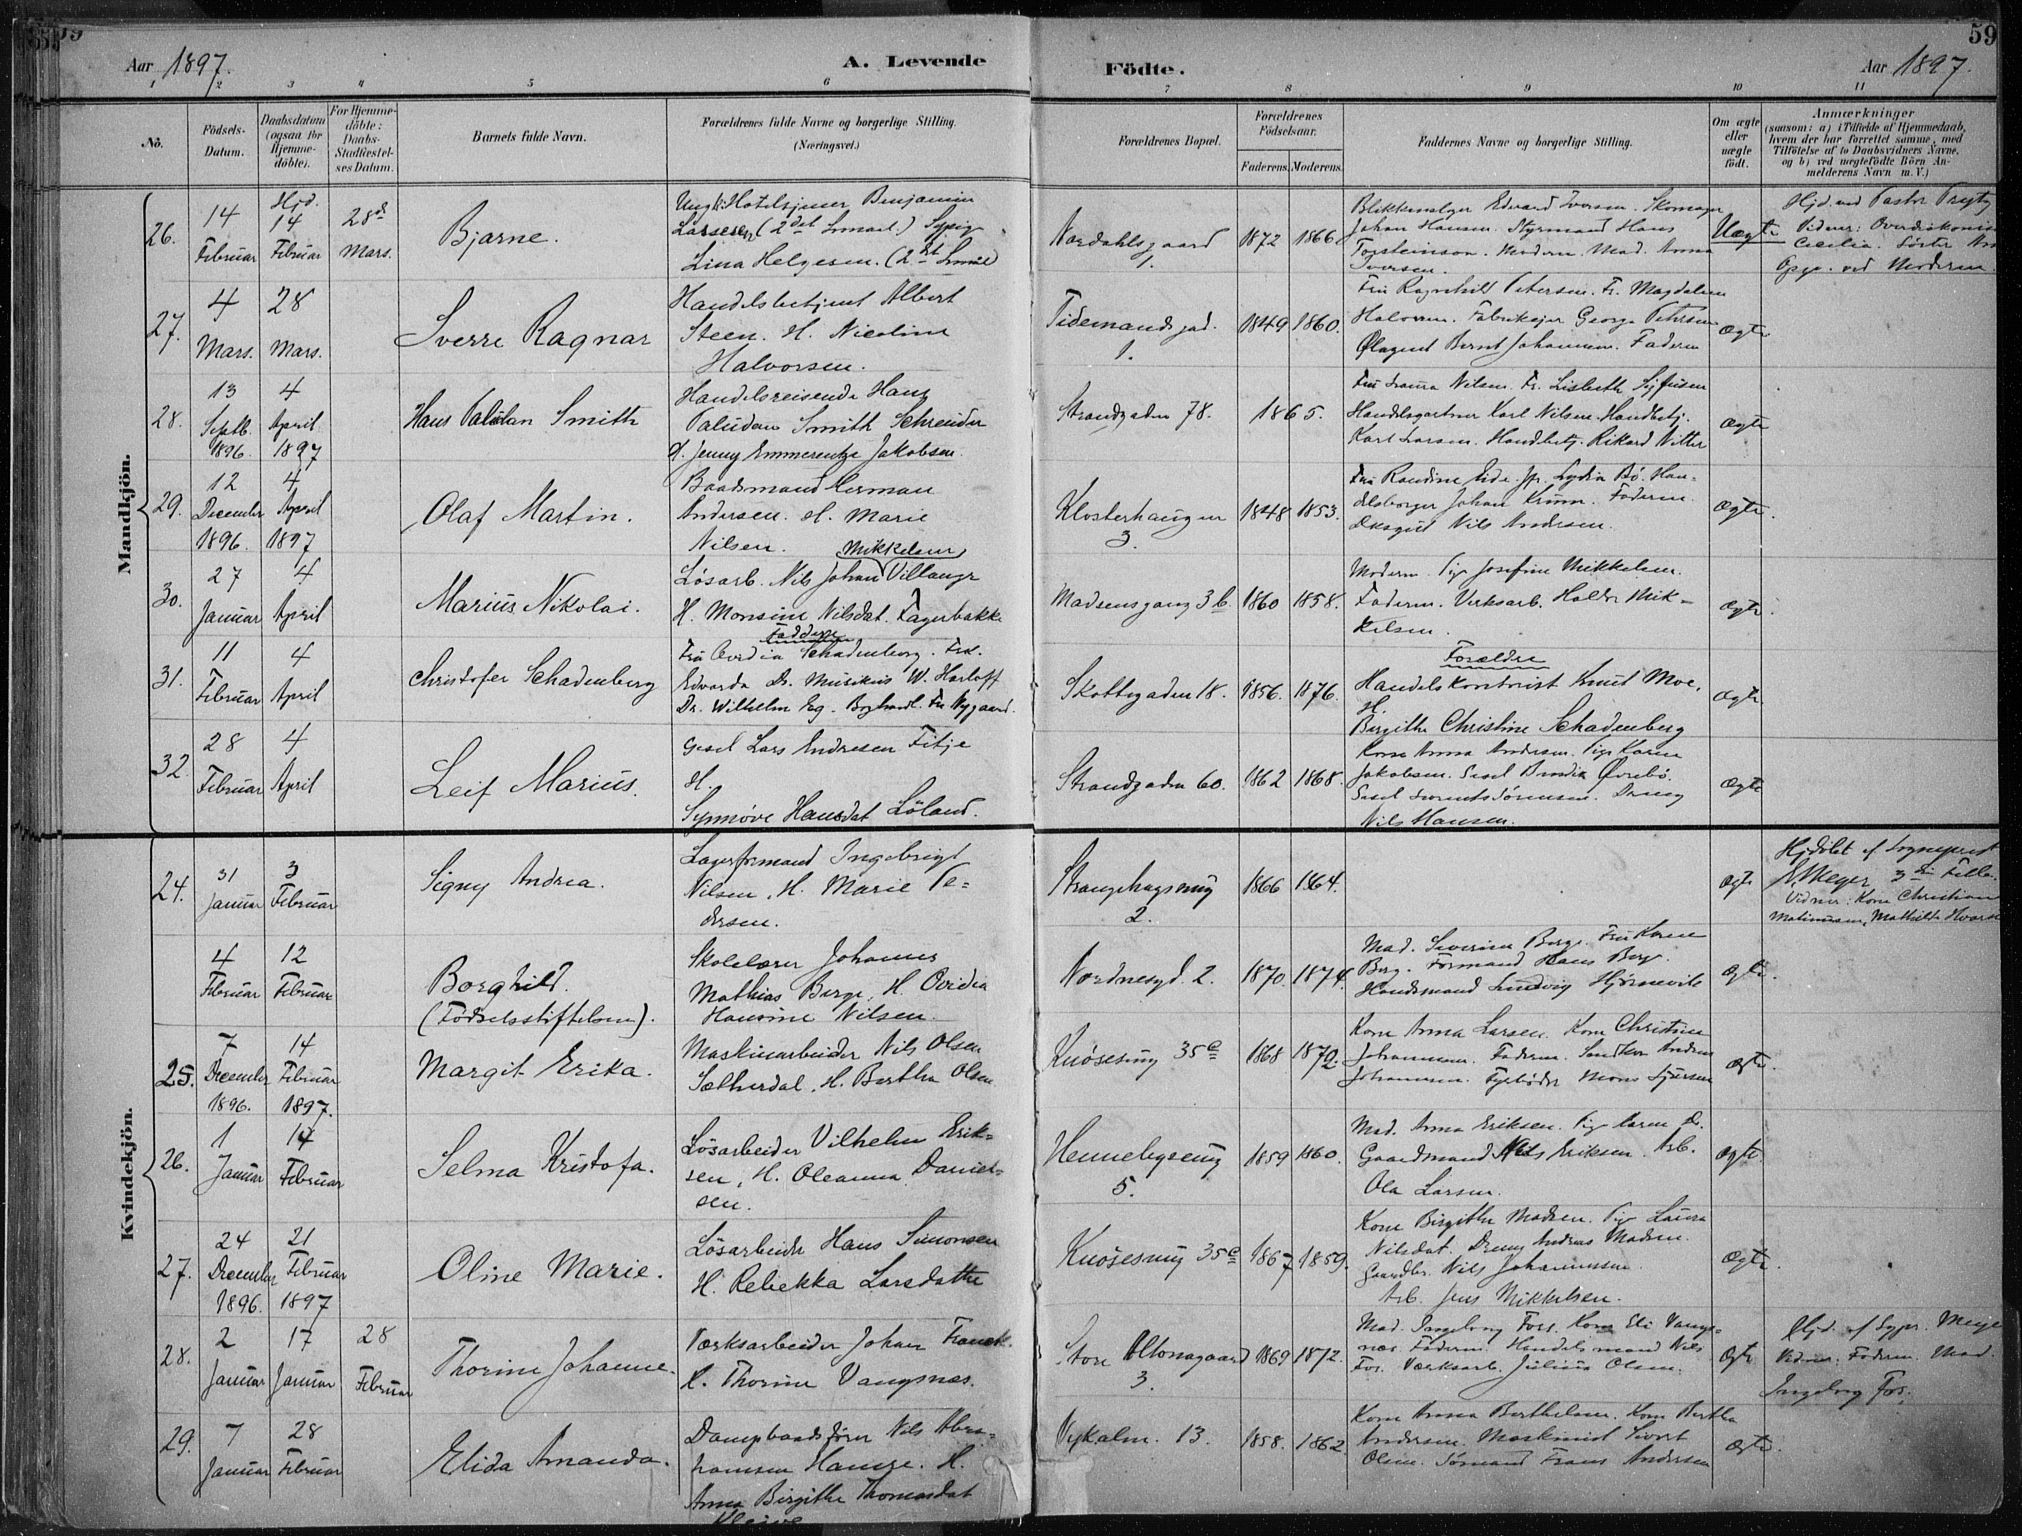 59
Aar 1897.
A. Levende
Födte.
Aar 1897.
1 2 3 4 5 6 7 8 9 10 11
No.
Födsels-
Datum.
Daabsdatum
(ogsaa for
Hjemme-
döbte).
For Hjemme-
döbte:
Daabs-
Stadfæstel-
ses Datum.
Barnets fulde Navn.
Forældrenes fulde Navne og borgerlige Stilling.
(Næringsvei.)
Forældrenes Bopæl.
Forældrenes
Födselsaar.
Faderens. Moderens.
Faddernes Navne og borgerlige Stilling.
Om ægte
eller
uægte
født.
Anmærkninger
(saasom: a) i Tilfælde af Hjemmedaab,
hvem der har forrettet samme, med
Tilföielse af to Daabsvidners Navne,
og b) ved uægtefödte Börn An-
melderens Navn m. V.)
Mandkjön.
26.
14
Februar
Hjd.
14
Februar
28de
Mars.
Bjarne.
Ungk. Hotelsjener Benjamin
Larsen (2det Levmaal.) Sypig.
Lina Helgesen. (2det
Nordahlsgaard
1.
1872 1866.
Blikkenslager Edvard Iversen. Skomager
Johan Hansen. Styrmand Hans
Torsteinson. Moderen. Mad. Anna
Iversen.
Uægte
Hjd. ved Pastor
Vidner:
Cecilia.
Opg. ved Moderen.
27.
4
Mars.
28
Mars.
Sverre Ragnar
Handelsbetjent Albert
Steen. H. Nicoline
Halvorsen.
Tidemandsgad.
1.
1849 1860.
Fru Ragnhild Petersen. Fr. Magdalene
Halvorsen. Fabrikejer George Petersen
Ølagent Bernt Johannesen. Faderen
Ægte
28.
13
Septb.
1896.
4
April
1897
Hans Paludan Smith
Handelsreisende Hans
Paludan Smith Schreuder
H. Jenny Emmerentze Jakobsen.
Strandgaden 78.
1865.
Fru Laura Nilsen. Fr. Lisbeth
Handelsgartner Karl Nilsen. Handbetj.
Karl Larsen. Handbetj. Rikard
Ægte
29.
12
December
1896.
4
April
1897
Olaf Martin.
Baadsmand Herman
Andersen. H. Marie
Nilsen.
Klosterhaugen
3.
1848 1853.
Fru Randine Eide. Jfr. Lydia Bø. Han-
delsborger Johan Krumm. Faderen.
Nils Andersen.
Ægte.
30.
27
Januar
4
April
Marius Nikolai.
Mikkelsen
Løsarb. Nils Johan Villanger
H. Monsine Nilsdat. Fagerbakke
Madsensgang 3b.
1860 1858.
Moderen. Pige Josefine Mikkelsen.
Faderen. Verksarb. Haldor Mik-
kelsen.
Ægte
31.
11
Februar
4
April
Christofer Schadenberg
Faddere
Fru Ovidia Schadenberg. Frk.
Edvarda Dr. Musikus W. Harloff
Dr. Wilhelm Eg. Boghandl. Fr. Nygaard.
Skottegaden 18.
1856. 1876.
Forældre
Handelskontorist Knut Moe,
H.
Birgithe Christine Schadenberg
Ægte
32.
28
Februar
4
April
Leif Marius.
Gesel Lars Endresen Fitje
H.
Synnøve Hansdat Løland.
Strandgaden 60.
1862 1868.
Kone Anna Andersen. Pige Karen
Jakobsen. Gesel Øvrebø.
Gesel Laurents Sørensen. Dreng
Nils Hansen.
Ægte
Kvindekjön.
24.
31
Januar
3
Februar
Signy Andrea.
Lagerformand Ingebrigt
Nilsen, H. Marie Pe-
dersen.
Strangehagesmug
2.
1866 1864.
Ægte
Hjdöbt af Sogneprest
Meyer,
Vidner: Kone Christiane
Mathilde
4
Februar
12
Februar
Borghild.
(Födselsstiftelsen).
Skolelærer Johannes
Mathias Berge, H. Ovidia
Hansine Nilsen.
Nordnesgd. 2.
1870. 1874.
Mad. Severine Berge. Fru Karen
Berg. Formand Hans Berg.
Handsmand Ludvig Hjørnevik
Ægte.
25.
7
December
1896.
14
Februar
1897.
Margit Erika.
Maskinarbeider Nils Olsen
Sætherdal, H. Bertha Olsen
Knøsesmug 35c
1868 1872.
Kone Anna Larsen. Kone Christine
Johannesen. Faderen. Andreas
Johannesen. Fyrbøder Mons
Ægte.
26.
1
Januar
14
Februar
Selma Kristofa.
Løsarbeider Vilhelm Erik-
sen, H. Oleanna Daniel-
sen.
Hennebysmug
5.
1859 1860.
Mad. Anna Eriksen. Pige Karen Do.
Gaardmand Nils Eriksen. Arb.
Ola Larsen.
Ægte.
27.
24
December
1896.
21
Februar
1897
Oline Marie.
Løsarbeider Hans Simonsen
H. Rebekka Larsdatter
Knøsesmug 35c
1867 1859.
Kone Birgithe Madsen. Pige Laura
Nilsdat. Dreng Andreas Madsen.
Gaardbr. Nils Johannessen.
Arb. Jens Mikkelsen.
Ægte.
28.
2
Januar
17
Januar
28
Februar
Thorine Johanne.
Værksarbeider Johan
H. Thorine Vangsnæs.
Store Altonagaard
3.
1869 1872.
Mad. Ingeborg Fos. Kone Eli Vangs-
næs. Faderen. Handelsmand Nils
Fos. Værksarb. Julius Olsen.
Ægte
Hjd. af Sgpr. Meyer
Vidner. Faderen. Mad.
Ingeborg Fos.
29.
7
Januar
28
Februar
Elida Amanda.
Dampbaadsfører Nils Abra-
hamsen Hauge. H.
Anna Birgithe Thomasdat
13.
1858. 1862
Kone Anna Berthelsen. Kone Bertha
Andersen. Maskinist Sivert
Olsen. Sømand Frans Andersen
Ægte.